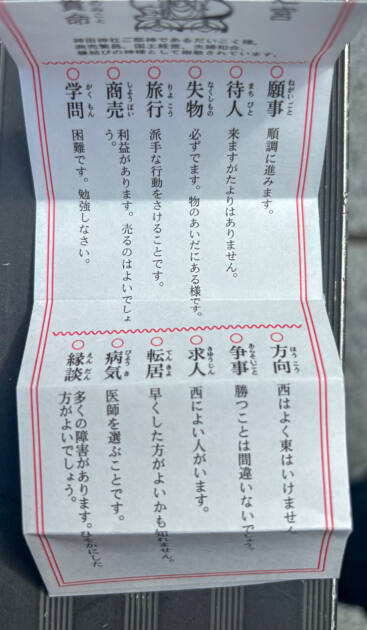 貴命
神田神社ご祭神であるだいこく様。
商売繁昌、国土経営、夫婦和合、
縁結びの神様として崇敬されています。
○願事
ねがいごと
順調に進みます。
○待人
まちびと
来ますがたよりはありません。
○失物
なくしもの
必ずでます。物のあいだにある様です。
○旅行
りよこう
派手な行動をさけることです。
○商売
しようばい
利益があります。売るのはよいでしょ
う。
○学問
がくもん
困難です。勉強しなさい。
○方向
ほうこう
西はよく東はいけません
○争事
あらそいごと
勝つことは間違いないでしょう。
○求人
きゆうじん
西によい人がいます。
○転居
てんきよ
早くした方がよいかも知れません。
○病気
びようき
医師を選ぶことです。
○縁談
えんだん
多くの障害があります。ひそかにした
方がよいでしょう。